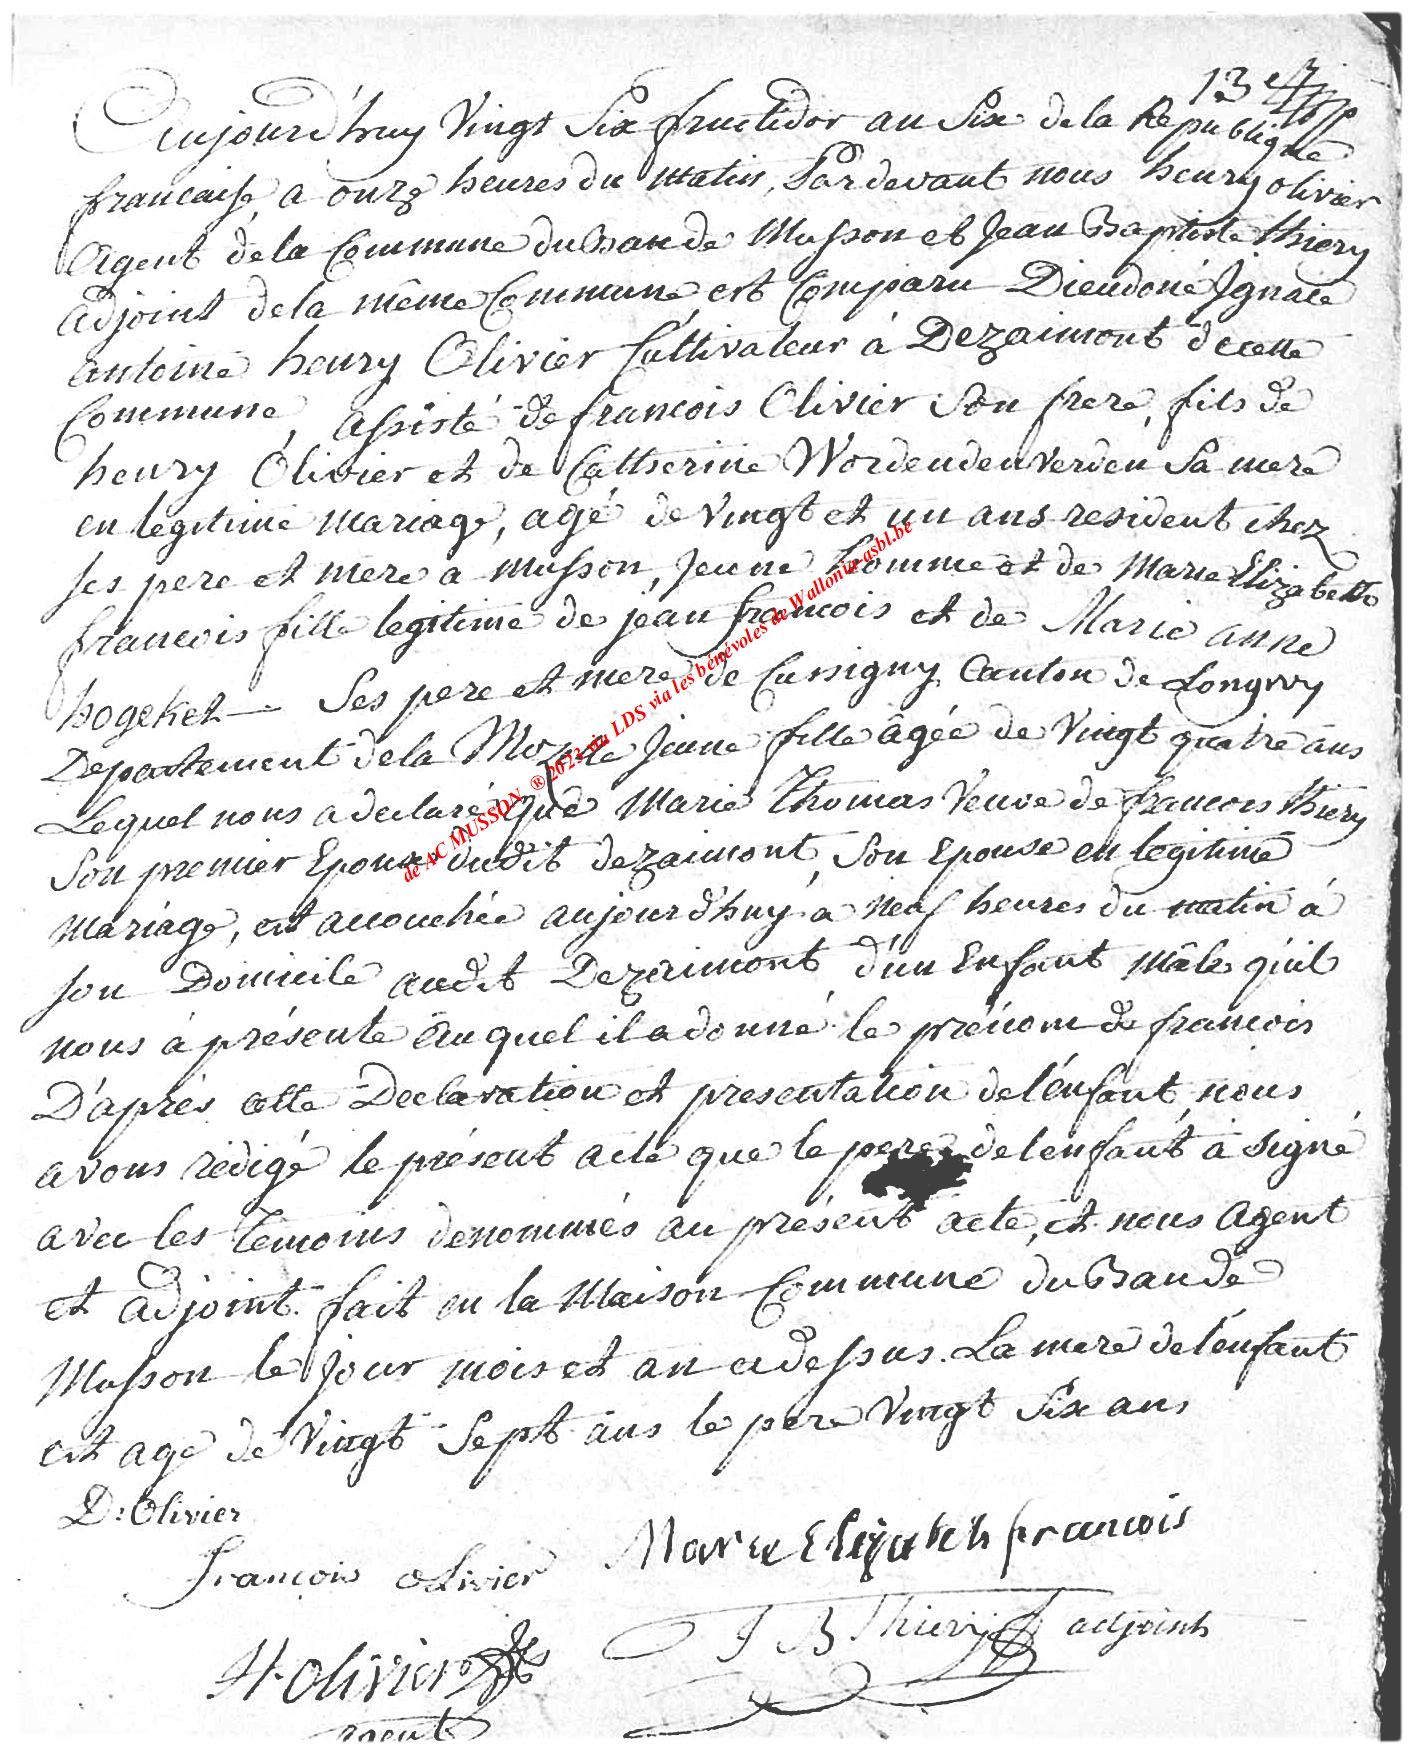 13e
Aujourd'huy Vingt Six fructidor an Six de la Republique
francaise, a onze heures du matin, Pardevant nous henry olivier
Agent de la Commune du Ban de Musson et Jean Baptiste thiery
adjoint de la même Commune est Comparu Dieudoné Ignace
antoine henry Olivier Cultivateur á Dezaimont de cette
Commune, assisté de francois Olivier Son frere, fils de
henry Olivier et de Catherine Wordendenverden Sa mere
en legitime mariage, agé de Vingt et un ans resident chez
ses pere et mere a musson, Jeune homme et de Marie Elizabeth
francois fille legitime de jean francois et de Marie anne
hogeket — Ses pere et mere de Cussigny Canton de Longwy
Departement de la Mozele Jeune fille âgée de Vingt quatre ans
Lequel nous a declaré que Marie Thomas Veuve de francois thiery
Son premier Epoux dudit dezaimont, Son Epouse en legitime
mariage, est accouchée aujourd'huy á neuf heures du matin á
son Domicile audit Dezaimont d'un Enfant Mâle qu'il
nous á présente Auquel il a donné le prénom de francois
D'après cette Declaration et presentation de l'énfant nous
avons rédigé le présent acte que le pere de lenfant á signé
avec les temoins denommés au présent acte, et nous Agent
et adjoint. fait en la Maison Commune du Ban de
Musson le Jour mois et an cidessus. La mere de l'énfant
est agé de Vingt Sept ans le pere Vingt Six ans
D: Olivier
Marie Elizabeth francois
François olivier
J B Thiery adjoint
H. Olivier
agent
de AC MUSSON ® 2023 via LDS via les bénévoles de Wallonia-asbl.be